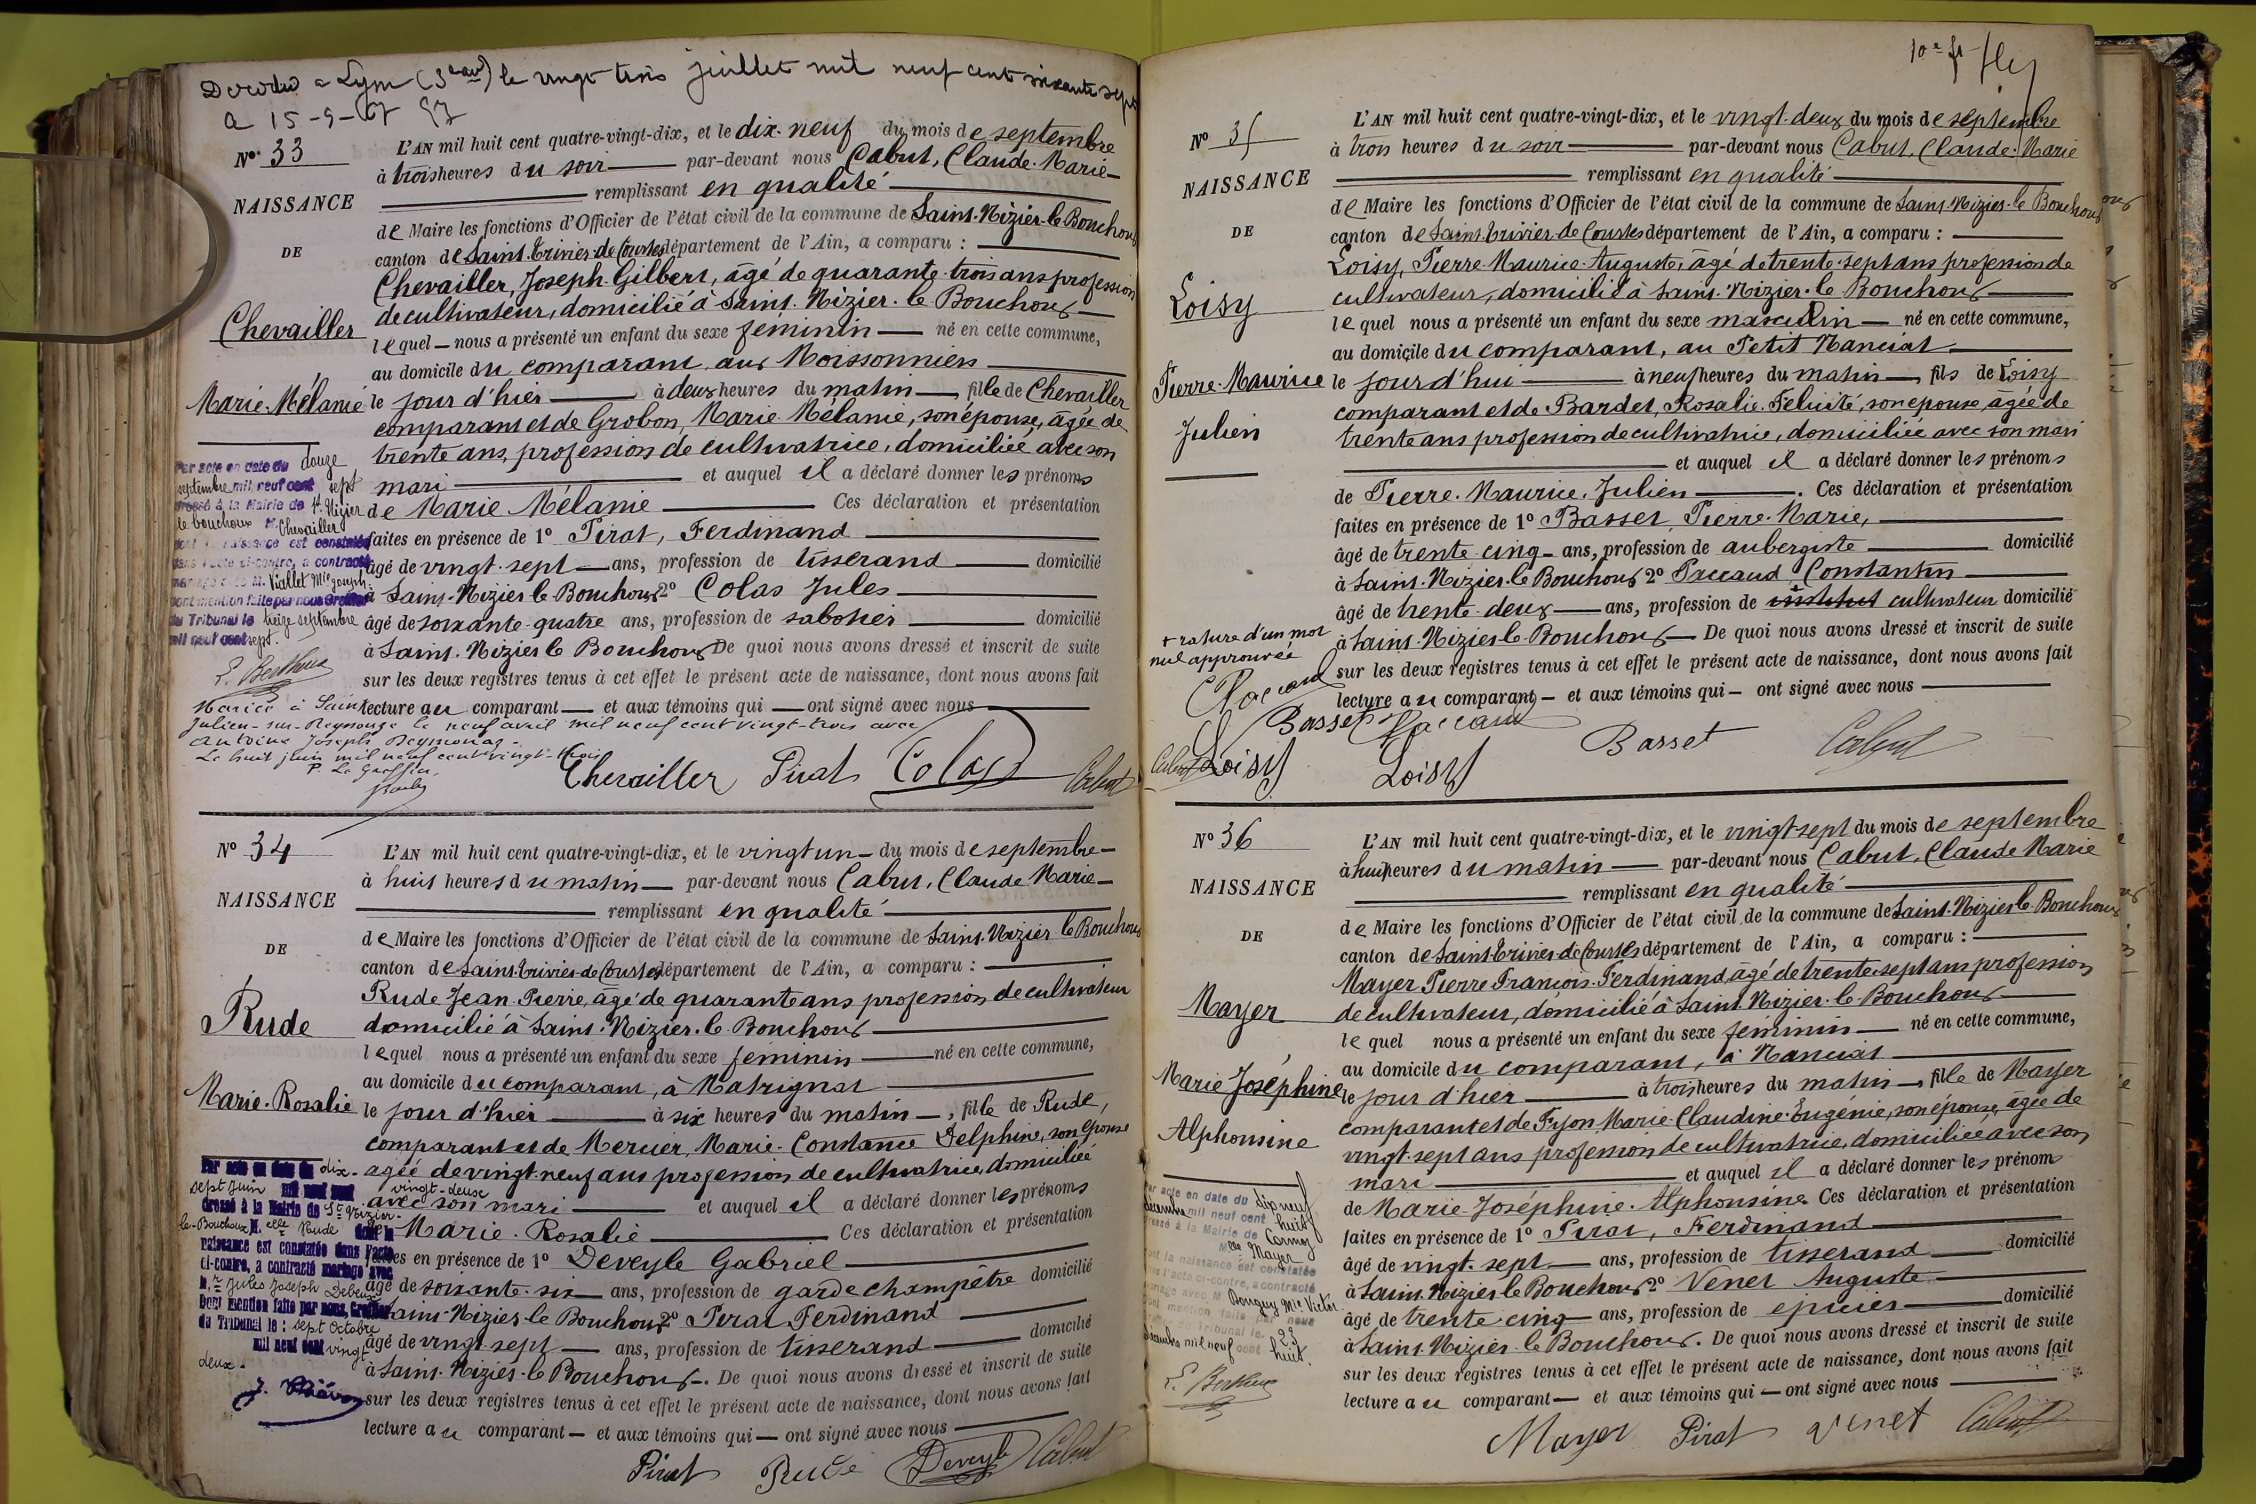 Décédée à Lyon (3e arrt) le vingt trois juillet mil neuf cent soixante sept
N° 33
L'AN mil huit cent quatre-vingt-dix, et le dix-neuf du mois de septembre
à trois heures du soir par-devant nous Cabut, Claude-Marie
NAISSANCE
remplissant en qualité
de Maire les fonctions d'Officier de l'état civil de la commune de Saint-Nizier-le-Bouchoux
DE
canton de Saint-Trivier-de-Courtes département de l'Ain, a comparu :
Chevailler, Joseph-Gilbert, âgé de quarante-trois ans profession
de cultivateur, domicilié à Saint-Nizier-le-Bouchoux
Chevailler
lequel nous a présenté un enfant du sexe féminin né en cette commune,
au domicile du comparant, aux Moissonniers
Marie-Mélanie
le jour d'hier à deux heures du matin, fille de Chevailler
comparant et de Grobon, Marie Mélanie, son épouse, âgée de
trente ans, profession de cultivatrice, domiciliée avec son
mari et auquel il a déclaré donner les prénoms
de Marie Mélanie Ces déclaration et présentation
faites en présence de 1° Pirat, Ferdinand
âgé de vingt-sept ans, profession de tisserand domicilié
à Saint-Nizier-le-Bouchoux 2° Colas Jules
âgé de soixante-quatre ans, profession de sabotier domicilié
à Saint-Nizier-le-Bouchoux De quoi nous avons dressé et inscrit de suite
sur les deux registres tenus à cet effet le présent acte de naissance, dont nous avons fait
lecture au comparant et aux témoins qui ont signé avec nous
Par acte en date du douze
septembre mil neuf cent sept
dressé à la Mairie de St-Nizier
le bouchoux M. Chevailler
dont la naissance est constatée
dans l'acte ci-contre, a contracté
mariage avec M. Viallet Mie Joseph.
Dont mention faite par nous Greffier
du Tribunal le treize septembre
mil neuf cent sept.
E. Berthue
Mariée à Saint
Julien-sur-Reyssouze le neuf avril mil neuf cent vingt-trois avec
Antoine Joseph
Le huit juin mil neuf cent vingt-trois
P. Le Greffier
Chevailler Pirat Colas Cabut
N° 34
L'AN mil huit cent quatre-vingt-dix, et le vingt un du mois de septembre
à huit heures du matin par-devant nous Cabut, Claude Marie
NAISSANCE
remplissant en qualité
de Maire les fonctions d'Officier de l'état civil de la commune de Saint-Nizier le Bouchoux
DE
canton de Saint-Trivier-de-Courtes département de l'Ain, a comparu :
Rude Jean-Pierre, âgé de quarante ans profession de cultivateur
Rude
domicilié à Saint-Nizier-le-Bouchoux
lequel nous a présenté un enfant du sexe féminin né en cette commune,
au domicile du comparant, à Matrignat
Marie-Rosalie
le jour d'hier à six heures du matin, fille de Rude,
comparant et de Mercier, Marie-Constance Delphine, son épouse
agée de vingt-neuf ans profession de cultivatrice domiciliée
avec son mari et auquel il a déclaré donner les prénoms
de Marie-Rosalie Ces déclaration et présentation
faites en présence de 1° Deveyle Gabriel
âgé de soixante-six ans, profession de garde champêtre domicilié
à Saint-Nizier-le-Bouchoux 2° Pirat Ferdinand
âgé de vingt-sept ans, profession de tisserand domicilié
à Saint-Nizier-le-Bouchoux. De quoi nous avons dressé et inscrit de suite
sur les deux registres tenus à cet effet le présent acte de naissance, dont nous avons fait
lecture au comparant et aux témoins qui ont signé avec nous
Par acte en date du dix-
sept Juin mil neuf cent vingt-deux
dressé à la Mairie de St-Nizier-
le-Bouchoux M.elle Rude dont la
naissance est constatée dans l'acte
ci-contre, a contracté mariage avec
M.r Jules Joseph
Dont mention faite par nous, Greffier
du Tribunal le : sept Octobre
mil neuf cent vingt
deux.
Pirat Rude Deveyle Cabut
N° 35
L'AN mil huit cent quatre-vingt-dix, et le vingt-deux du mois de septembre
à trois heures du soir par-devant nous Cabut, Claude-Marie
NAISSANCE
remplissant en qualité
de Maire les fonctions d'Officier de l'état civil de la commune de Saint-Nizier-le Bouchoux
DE
canton de Saint-Trivier-de-Courtes département de l'Ain, a comparu :
Loisy, Pierre-Maurice-Auguste, âgé de trente-sept ans profession de
cultivateur, domicilié à Saint-Nizier-le Bouchoux
Loisy
lequel nous a présenté un enfant du sexe masculin né en cette commune,
au domicile du comparant, au Petit Nanciat
Pierre-Maurice
Julien
le jour d'hui à neuf heures du matin, fils de Loisy
comparant et de Bardet, Rosalie-Félicité, son épouse, agée de
trente ans profession de cultivatrice, domiciliée avec son mari
et auquel il a déclaré donner les prénoms
de Pierre-Maurice-Julien. Ces déclaration et présentation
faites en présence de 1° Basset, Pierre-Marie,
âgé de trente-cinq ans, profession de aubergiste domicilié
à Saint-Nizier-le-Bouchoux 2° Paccaud Constantin
âgé de trente-deux ans, profession de cultivateur domicilié
+ rature d'un mot
nul approuvée
à Saint-Nizier-le-Bouchoux De quoi nous avons dressé et inscrit de suite
sur les deux registres tenus à cet effet le présent acte de naissance, dont nous avons fait
lecture au comparant et aux témoins qui ont signé avec nous
Paccaud
Basset Paccaud
Cabut Loisy Loisy Basset Cabut
N° 36
L'AN mil huit cent quatre-vingt-dix, et le vingt-sept du mois de septembre
à huit heures du matin par-devant nous Cabut, Claude Marie
NAISSANCE
remplissant en qualité
de Maire les fonctions d'Officier de l'état civil de la commune de Saint-Nizier-le-Bouchoux
DE
canton de Saint-Trivier-de-Courtes département de l'Ain, a comparu :
Mayer Pierre-François-Ferdinand, âgé de trente-sept ans profession
Mayer
de cultivateur, domicilié à Saint-Nizier-le Bouchoux
lequel nous a présenté un enfant du sexe féminin né en cette commune,
au domicile du comparant, à Nanciat
Marie-Joséphine
Alphonsine
le jour d'hier à trois heures du matin, fille de Mayer
comparant et de Fyon Marie-Claudine-Eugénie, son épouse, agée de
vingt-sept ans profession de cultivatrice, domiciliée avec son
mari et auquel il a déclaré donner les prénom
de Marie-Joséphine-Alphonsine Ces déclaration et présentation
faites en présence de 1° Pirat, Ferdinand
âgé de vingt-sept ans, profession de tisserand domicilié
à Saint-Nizier-le-Bouchoux 2° Venet Auguste
âgé de trente cinq ans, profession de épicier domicilié
à Saint-Nizier-le-Bouchoux. De quoi nous avons dressé et inscrit de suite
sur les deux registres tenus à cet effet le présent acte de naissance, dont nous avons fait
lecture au comparant et aux témoins qui ont signé avec nous
Par acte en date du dix neuf
décembre mil neuf cent huit
dressé à la Mairie de Cormoz
Melle Mayer
dont la naissance est constatée
dans l'acte ci-contre, a contracté
mariage avec M Donguy Mie Victor
Dont mention faite par nous
Tribunal le 23
décembre mil neuf cent huit.
E. Berthue
Mayer Pirat Venet Cabut